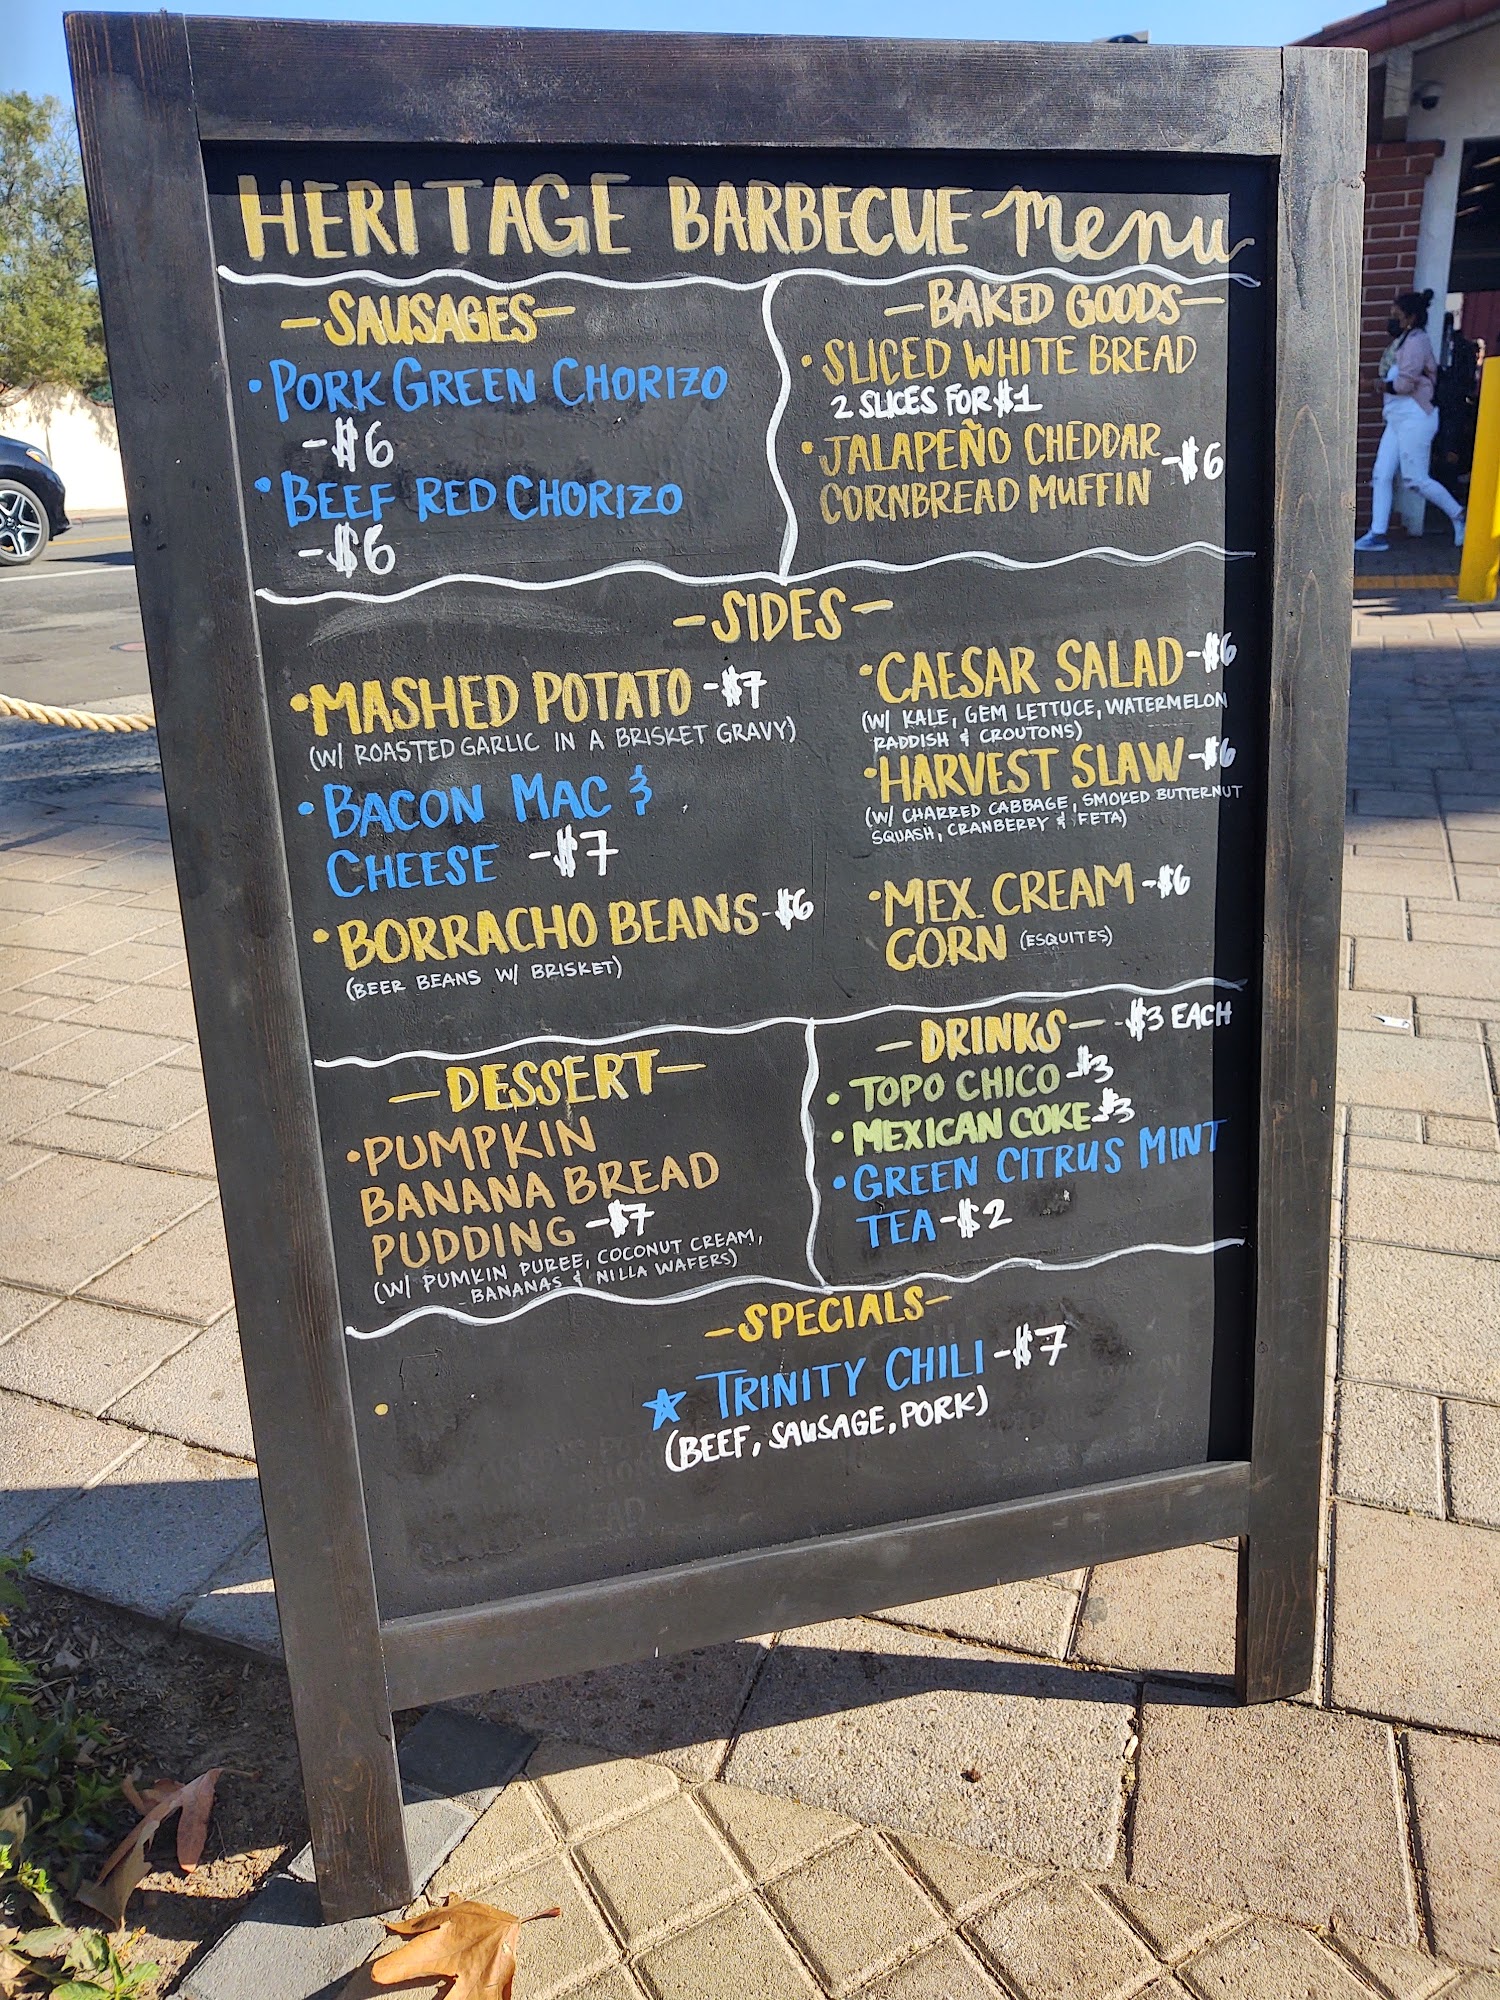 HERITAGE BARBECUE menu
-SAUSAGES-
• PORK GREEN CHORIZO
-$6
• BEEF RED CHORIZO
-$6
-BAKED GOODS-
• SLICED WHITE BREAD
2 SLICES FOR $1
• JALAPEÑO CHEDDAR -$6
CORNBREAD MUFFIN
-SIDES-
• MASHED POTATO -$7
(W/ ROASTED GARLIC IN A BRISKET GRAVY)
• BACON MAC &
CHEESE -$7
• BORRACHO BEANS -$6
(BEER BEANS W/ BRISKET)
• CAESAR SALAD -$6
(W/ KALE, GEM LETTUCE, WATERMELON
RADDISH & CROUTONS)
• HARVEST SLAW -$6
(W/ CHARRED CABBAGE, SMOKED BUTTERNUT
SQUASH, CRANBERRY & FETA)
• MEX. CREAM -$6
CORN (ESQUITES)
-DESSERT-
• PUMPKIN
BANANA BREAD
PUDDING -$7
(W/ PUMKIN PUREE, COCONUT CREAM,
BANANAS & NILLA WAFERS)
-DRINKS- -$3 EACH
• TOPO CHICO -$3
• MEXICAN COKE -$3
• GREEN CITRUS MINT
TEA -$2
-SPECIALS-
★ TRINITY CHILI -$7
(BEEF, SAUSAGE, PORK)